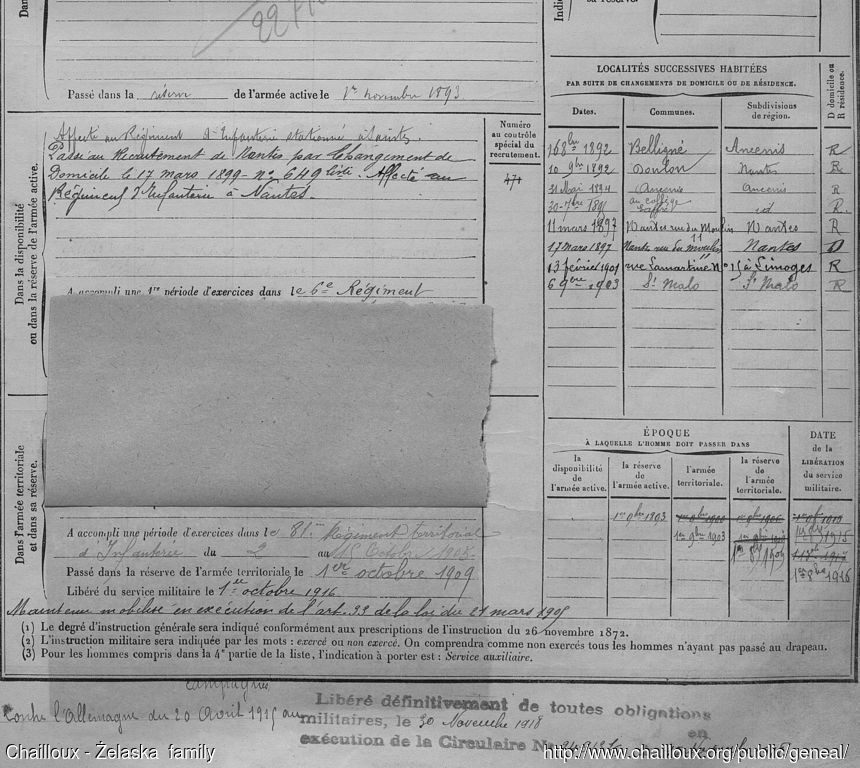 sa réserve.
Passé dans la réserve de l'armée active le 1er novembre 1893
Dans la disponibilité
ou dans la réserve de l'armée active.
Affecté au Régiment d'Infanterie stationné à Saintes
Passé au Recrutement de Nantes par Changement de
Domicile le 17 mars 1899 - no 649 liste. Affecté au
Régiment d'Infanterie à Nantes.
A accompli une 1re période d'exercices dans le 6e Régiment
Numéro
au contrôle
spécial du
recrutement.
471
LOCALITÉS SUCCESSIVES HABITÉES
PAR SUITE DE CHANGEMENTS DE DOMICILE OU DE RÉSIDENCE.
D domicile ou
R résidence.
Dates. Communes. Subdivisions
de région.
16 8bre 1892 Belligné Ancenis R
10 9bre 1892 Doulon Nantes R
31 Mai 1894 Ancenis Ancenis R
30 7bre au collège Saffré id R
11 mars 1897 Nantes rue du Moulin Nantes R
17 mars 1897 Nantes rue du Moulin 11 Nantes D
13 février 1901 rue Lamartine no 15 à Limoges R
6 9bre 1903 St Malo St Malo R
Dans l'armée territoriale
et dans sa réserve.
A accompli une période d'exercices dans le 81me Régiment territorial
d'Infanterie du 2 au 15 Octobre 1905
Passé dans la réserve de l'armée territoriale le 1er octobre 1909
Libéré du service militaire le 1er octobre 1916
Maintenu mobilisé en exécution de l'art. 33 de la loi du 21 mars 1905
ÉPOQUE
À LAQUELLE L'HOMME DOIT PASSER DANS
DATE
de la
LIBÉRATION
du service
militaire.
la
disponibilité
de
l'armée active.
la réserve
de
l'armée active.
l'armée
territoriale.
la réserve
de
l'armée
territoriale.
1er 9bre 1893 1er 9bre 1900 1er 9bre 1906
1er 9bre 1903 1915
1er 8bre 1909
1er 8bre 1916
(1) Le degré d'instruction générale sera indiqué conformément aux prescriptions de l'instruction du 26 novembre 1872.
(2) L'instruction militaire sera indiquée par les mots : exercé ou non exercé. On comprendra comme non exercés tous les hommes n'ayant pas passé au drapeau.
(3) Pour les hommes compris dans la 4e partie de la liste, l'indication à porter est : Service auxiliaire.
Campagnes
Contre l'Allemagne du 20 Avril 1915 au
Libéré définitivement de toutes obligations
militaires, le 30 Novembre 1918 en
exécution de la Circulaire No
Chailloux - Żelaska family
http://www.chailloux.org/public/geneal/